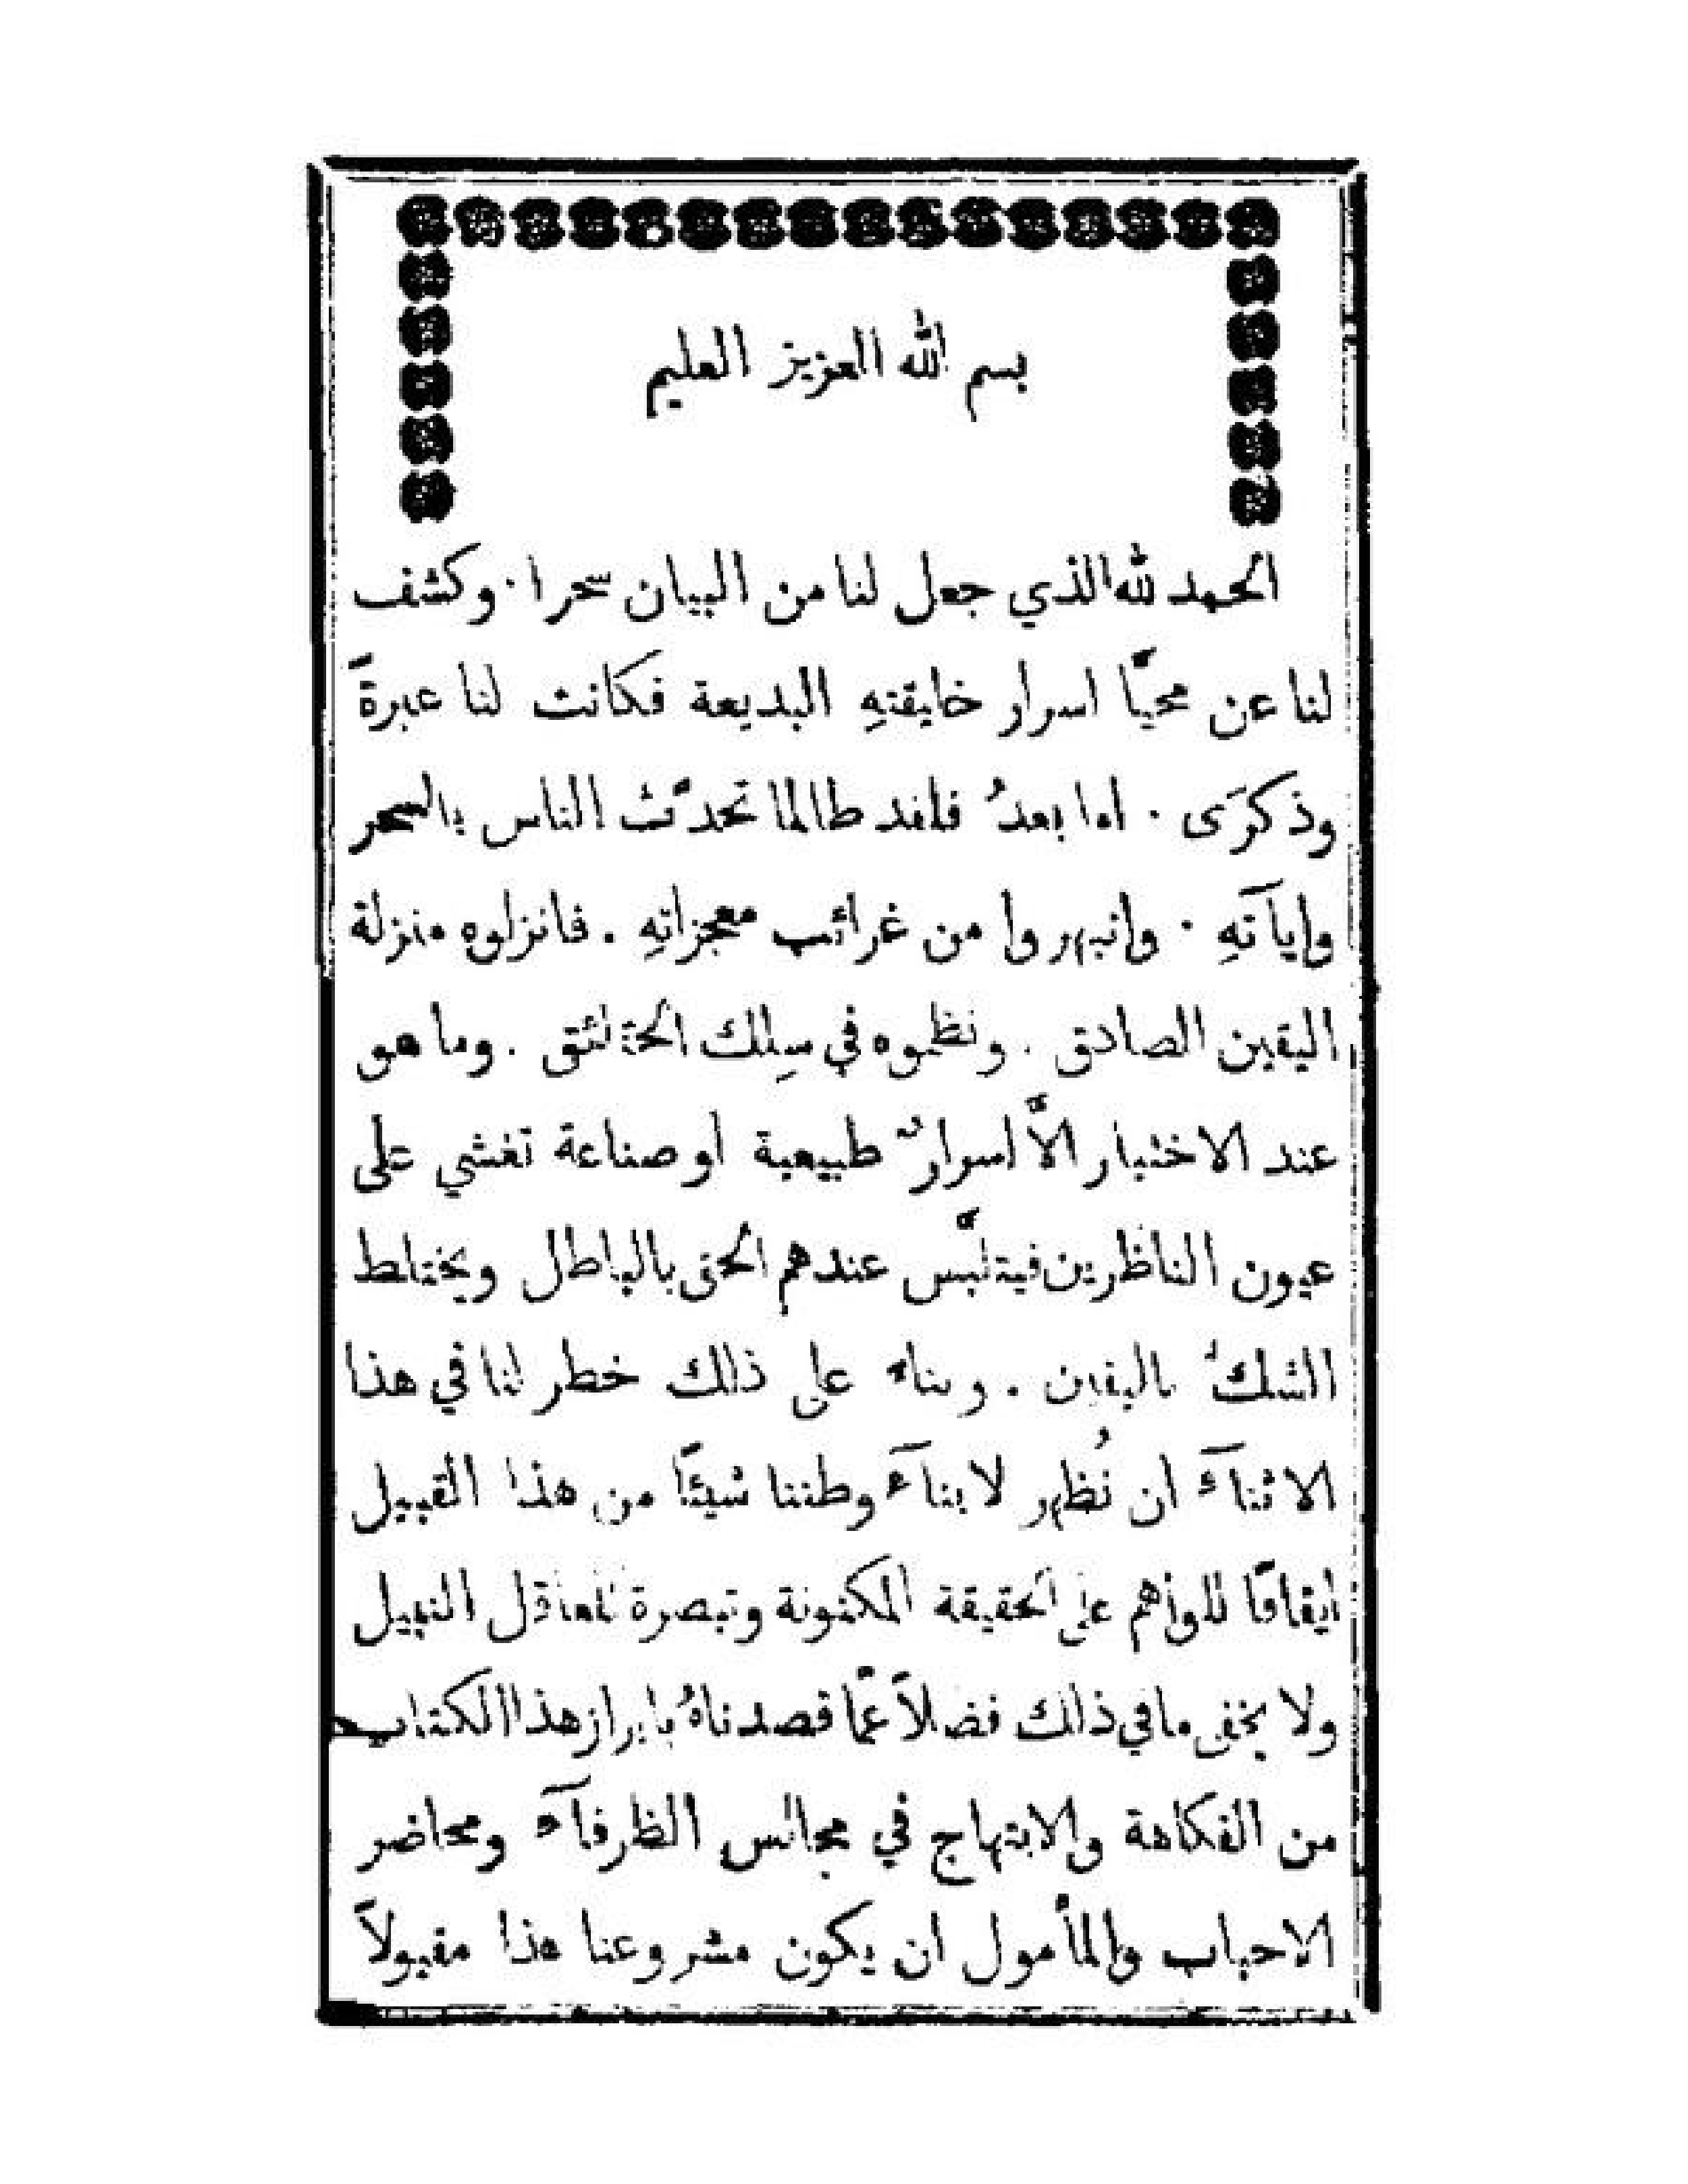 بسم الله العزيز العليم
الحمد لله الذي جعل لنا من البيان سحرا · وكشف
لنا عن محيَّا اسرار خليقتهِ البديعة فكانت لنا عبرةً
وذكرَى · اما بعدُ فلقد طالما تحدَّث الناس بالسحر
وايآتهِ · وانبهروا من غرائب معجزاتهِ . فانزلوه منزلة
اليقين الصادق . ونظموه في سِلك الحقائق . وما هو
عند الاختبار الاَّ اسرارٌ طبيعية او صناعة تغشي على
عيون الناظرين فيتلبَّس عندهم الحق بالباطل ويختلط
الشكُ باليقين . وبناء على ذلك خطر لنا في هذا
الاثنآء ان نُظهر لابنآء وطننا شيئًا من هذا القبيل
ايقافًا للواهم على الحقيقة المكنونة وتبصرة للعاقل النبيل
ولا يخفى ما في ذلك فضلاً عمَّا قصدناهُ بابراز هذا الكتاب
من الفكاهة والابتهاج في مجالس الظرفآء ومحاضر
الاحباب والمأمول ان يكون مشروعنا هذا مقبولاً